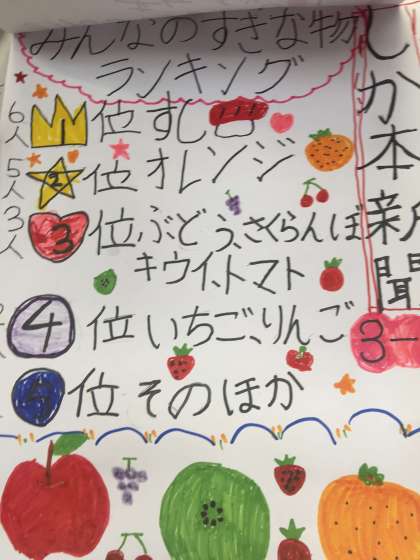 みんなのすきな物
ランキング
しか本新聞
3-
6人 1位 すし
5人 2位 オレンジ
3人 3位 ぶどう、さくらんぼ
キウイ、トマト
4位 いちご、りんご
5位 そのほか